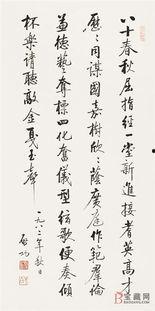 八十春秋屈指经一堂新进接耆英高才
历=同谋国嘉树欣=荫广庭作范群伦
兼德艺夺标四化奋仪型弦歌便奏倾
杯乐请听敲金戛玉声
一九八二年秋日
启功
宝藏网